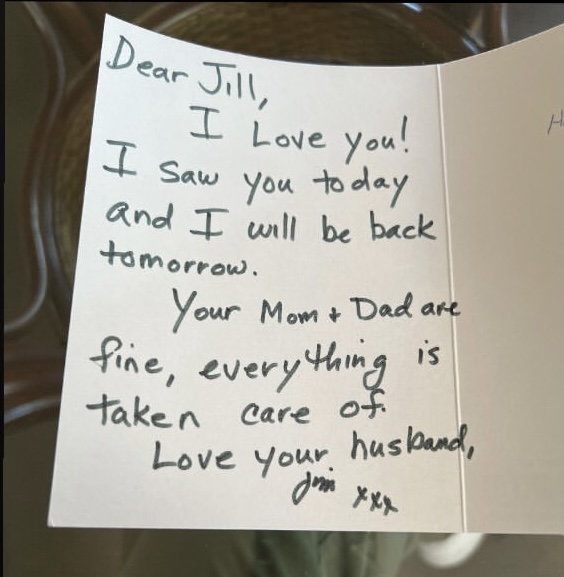 Dear Jill,
I Love you!
I saw you today
and I will be back
tomorrow.
Your Mom + Dad are
fine, everything is
taken care of.
Love your husband,
Jim xxx
H